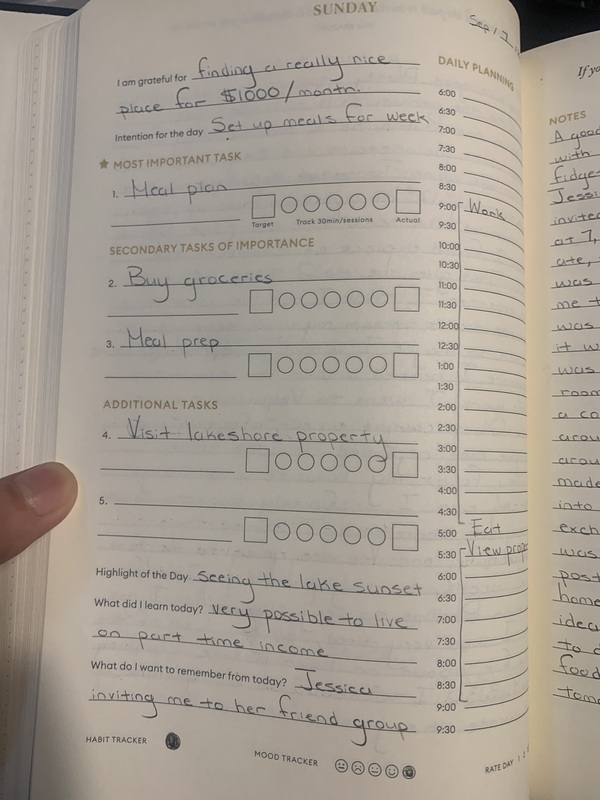 SUNDAY
Sep 17
I am grateful for finding a really nice
place for $1000/month.
Intention for the day Set up meals for week
★ MOST IMPORTANT TASK
1. Meal plan
Target Track 30min/sessions Actual
SECONDARY TASKS OF IMPORTANCE
2. Buy groceries
3. Meal prep
ADDITIONAL TASKS
4. Visit lakeshore property
5.
Highlight of the Day Seeing the lake sunset
What did I learn today? very possible to live
on part time income
What do I want to remember from today? Jessica
inviting me to her friend group
HABIT TRACKER
MOOD TRACKER
RATE DAY 1 2
DAILY PLANNING
6:00
6:30
7:00
7:30
8:00
8:30
9:00 Work
9:30
10:00
10:30
11:00
11:30
12:00
12:30
1:00
1:30
2:00
2:30
3:00
3:30
4:00
4:30
5:00 Eat
5:30 View prop
6:00
6:30
7:00
7:30
8:00
8:30
9:00
9:30
If yo
NOTES
A good
with
fidge
Jessi
invited
at 7,
ate,
was
me t
was
it w
was
room
a co
arou
arou
made
into
exch
was
post
home
idea
to d
food
tomo